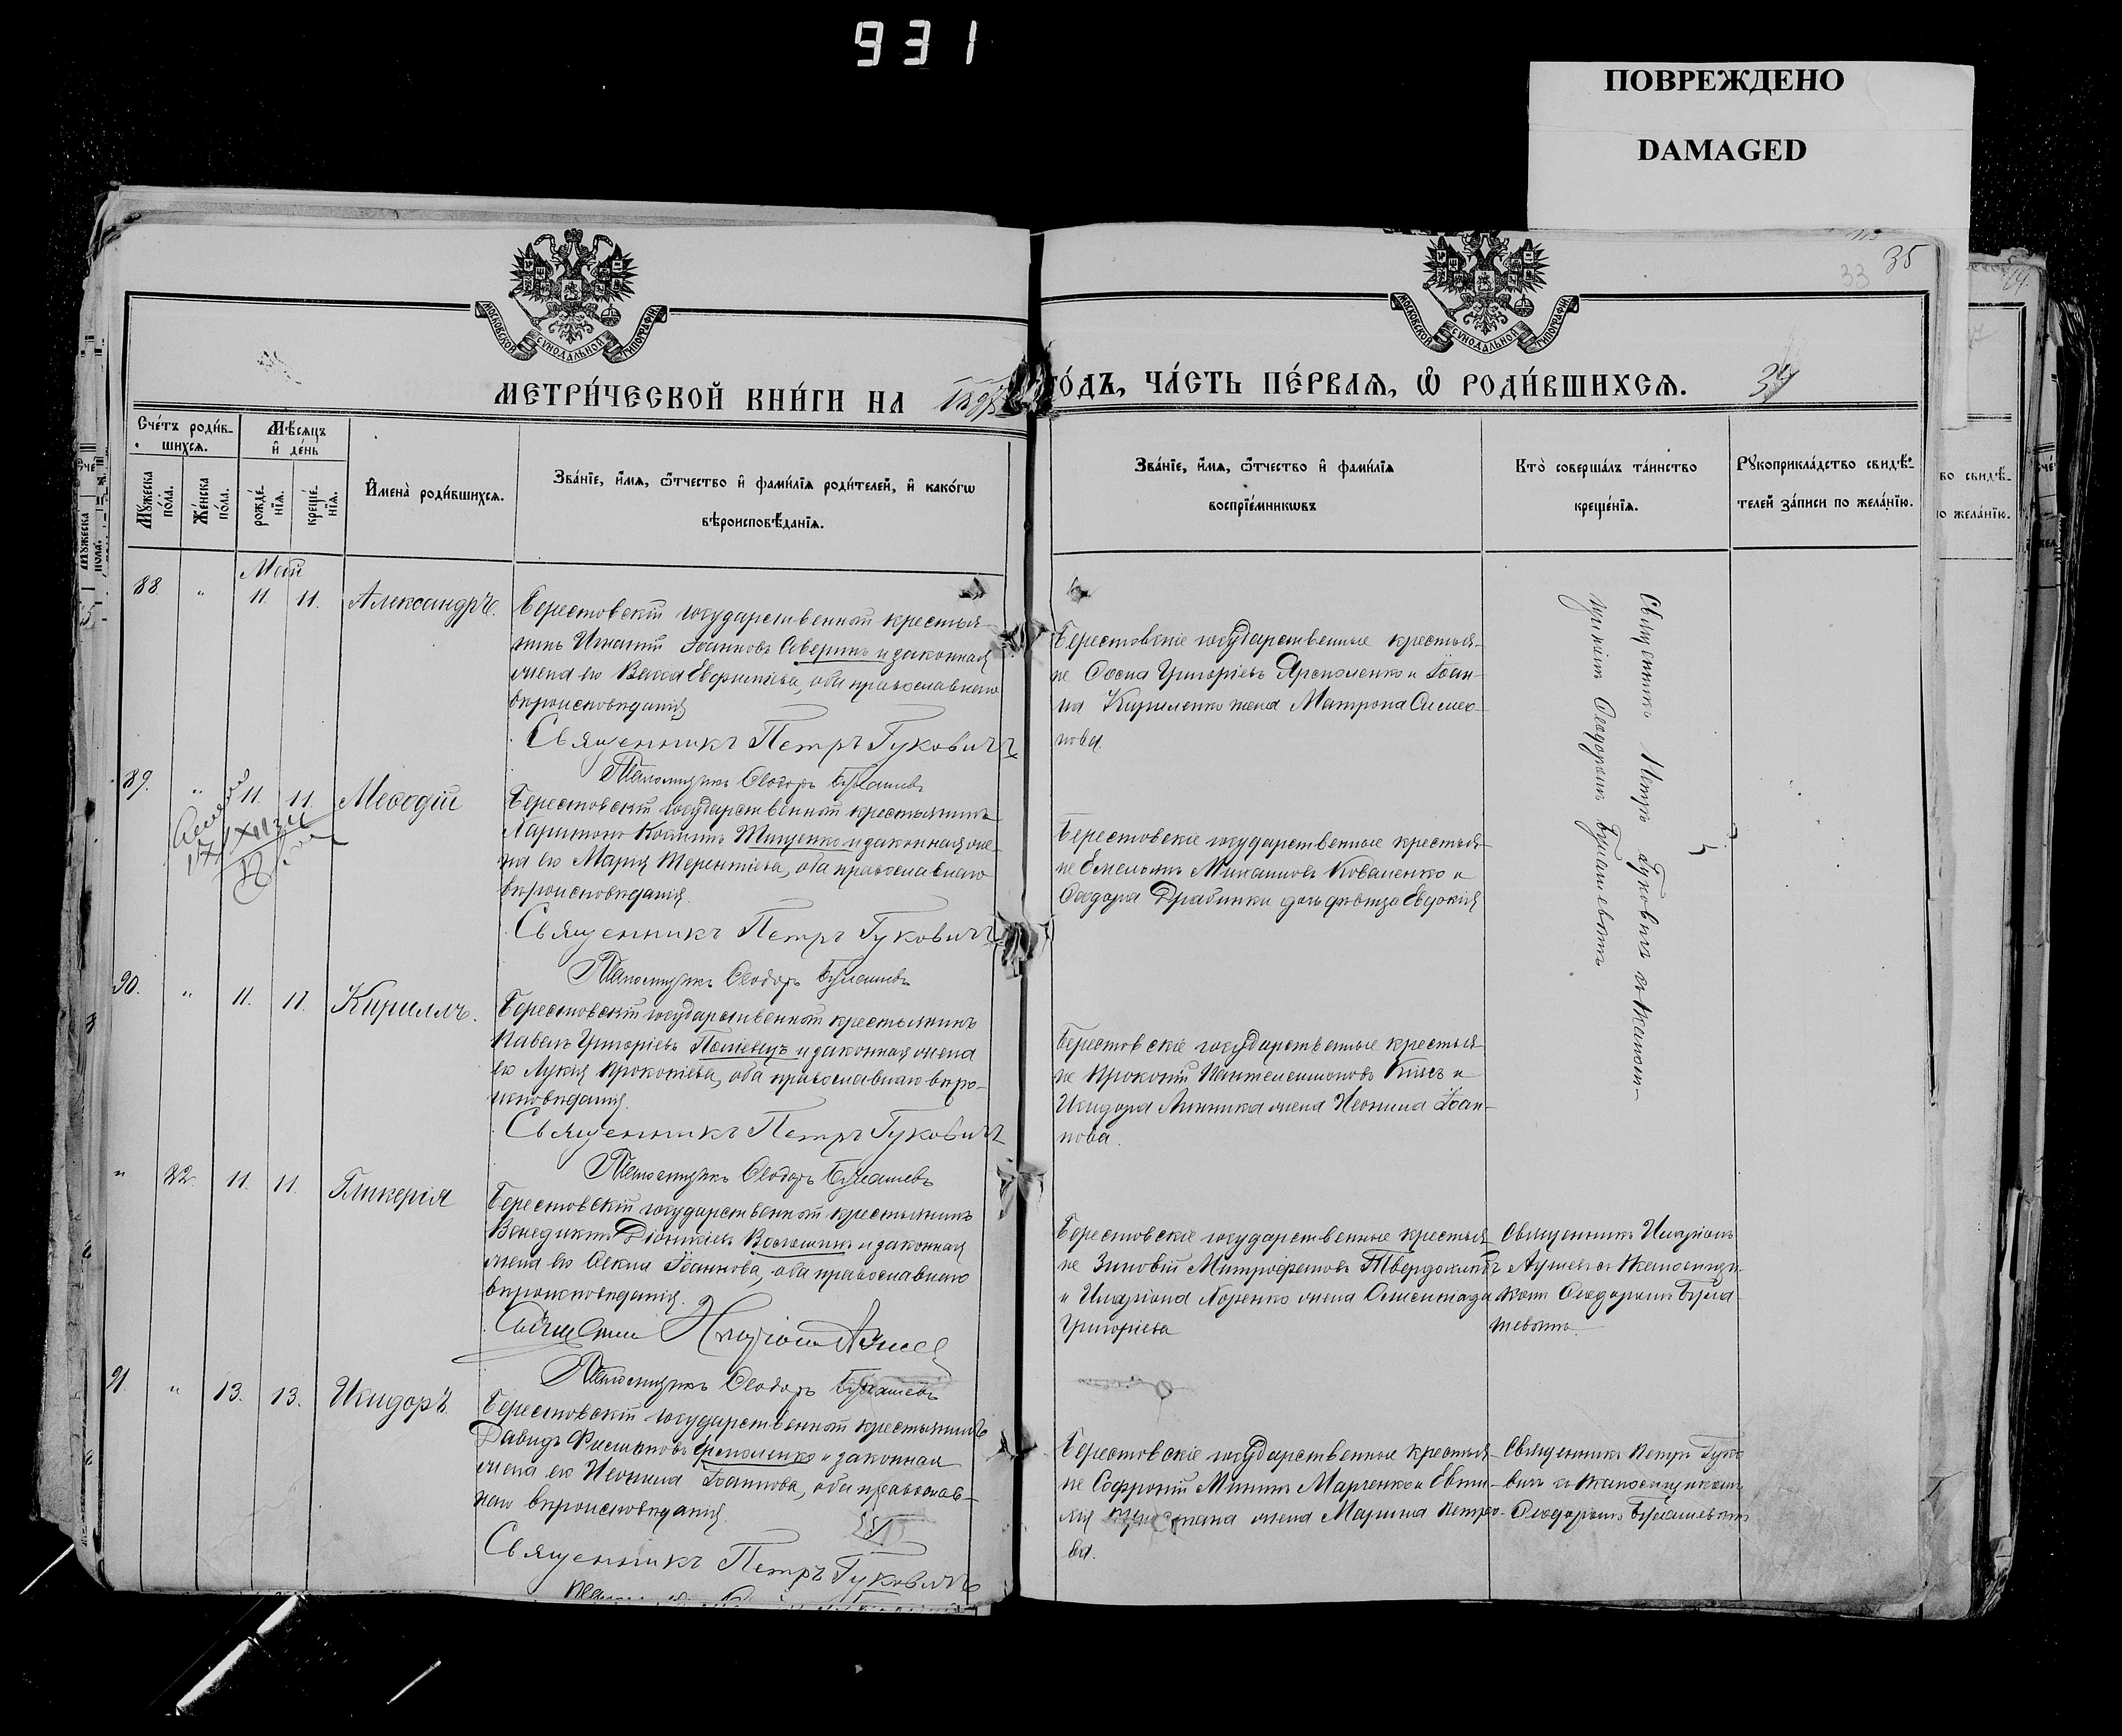 931
ПОВРЕЖДЕНО
DAMAGED
35
33
МОСКОВСКОЙ СѴНОДАЛЬНОЙ ТИПОГРАФІИ
МОСКОВСКОЙ СѴНОДАЛЬНОЙ ТИПОГРАФІИ
МЕТРИ́ЧЕСКОЙ КНИ́ГИ НА
ГО́ДЪ, ЧА́СТЬ ПЕ́РВАѦ, Ѡ҆ РОДИ́ВШИХСѦ.
34
Сче́тъ роди́в-
шихсѧ.
Мѣ́сѧцъ
и҆ де́нь
Мꙋ́жеска
по́ла.
Же́нска
по́ла.
рожде́-
нїѧ.
креще́-
нїѧ.
И҆мена̀ роди́вшихсѧ.
Зва́нїе, и҆́мѧ, ѻ҆́тчество и҆ фами́лїѧ роди́телей, и҆ како́гѡ
вѣроисповѣ́данїѧ.
Зва́нїе, и҆́мѧ, ѻ҆́тчество и҆ фами́лїѧ
воспрїе́мникѡвъ
Кто̀ соверша́лъ та́инство
креще́нїѧ.
Рꙋкоприкла́дство свидѣ́-
телей за́писи по жела́нїю.
Май
88. " 11. 11. Александръ.
Берестовскій государственный крестья-
нинъ Игнатій Іоанновъ Аверинъ и законная
жена его Васса Евфиміева, оба православнаго
вѣроисповѣданія
Священникъ Петръ Гуковичъ
Псаломщикъ Ѳеодоръ Булашевъ
Берестовскіе государственные крестья-
не Сосна Григоріевъ Ярмоленко и Іоан-
на Кириленко жена Матрона Симео-
нова.
Священникъ Петръ Гуковичъ съ псалом-
щикомъ Ѳеодоромъ Булашевымъ
89. " 11. 11. Меѳодій
Берестовскій государственный крестьянинъ
Харитонъ Косминъ Тищенко и законная же-
на его Марія Терентіева, оба православнаго
вѣроисповѣданія.
Священникъ Петръ Гуковичъ
Псаломщикъ Ѳеодоръ Булашевъ
Берестовскіе государственные крестья-
не Емельянъ Михаиловъ Коваленко и
Ѳеодора Драбинки дочь дѣвица Евдокія
90. " 11. 11. Кириллъ.
Берестовскій государственный крестьянинъ
Павелъ Григоріевъ Полівецъ и законная жена
его Лукія Прокопіева, оба православнаго вѣро-
исповѣданія.
Священникъ Петръ Гуковичъ
Псаломщикъ Ѳеодоръ Булашевъ
Берестовскіе государственные крестья-
не Прокопій Пантелеимоновъ Кіясъ и
Исидора Линника жена Неонила Іоан-
нова.
" 82. 11. 11. Гликерія
Берестовскій государственный крестьянинъ
Венедиктъ Діонисіевъ Волошинъ и законная
жена его Ѳекла Іоаннова, оба православнаго
вѣроисповѣданія.
Псаломщикъ Ѳеодоръ Булашевъ
Берестовскіе государственные крестья-
не Зиновій Митрофановъ Твердохлѣбъ
и Иларіона Норенко жена
Григоріева
Священникъ Иларіонъ
съ псаломщи-
комъ Ѳеодоромъ Була-
шевымъ.
91. " 13. 13. Исидоръ.
Берестовскій государственный крестьянинъ
Давидъ Филиповъ Ермоленко и законная
жена его Неонила Іоаннова, оба православ-
наго вѣроисповѣданія.
Священникъ Петръ Гуковичъ
Берестовскіе государственные крестья-
не Софроній Мининъ Марченко и Евфи-
мія жена Марина Петро-
ва.
Священникъ Петръ Гуко-
вичъ съ псаломщикомъ
Ѳеодоромъ Булашевымъ